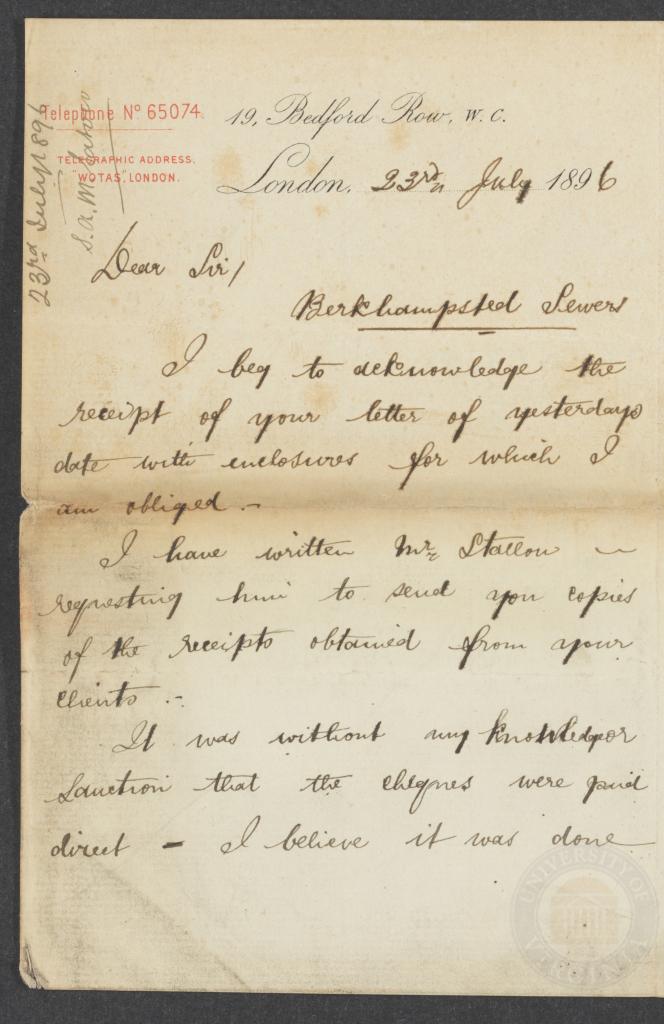 Telephone No 65074.
TELEGRAPHIC ADDRESS.
"WOTAS", LONDON.
23rd July 1896
S.A.M.
19, Bedford Row, W.C.
London, 23rd July 1896
Dear Sir/
Berkhampsted Sewers
I beg to acknowledge the
receipt of your letter of yesterdays
date with enclosures for which I
am obliged. -
I have written Mr. Stallon
requesting him to send you copies
of the receipts obtained from your
clients. -
It was without my knowledge or
sanction that the cheques were paid
direct - I believe it was done
UNIVERSITY OF VIRGINIA